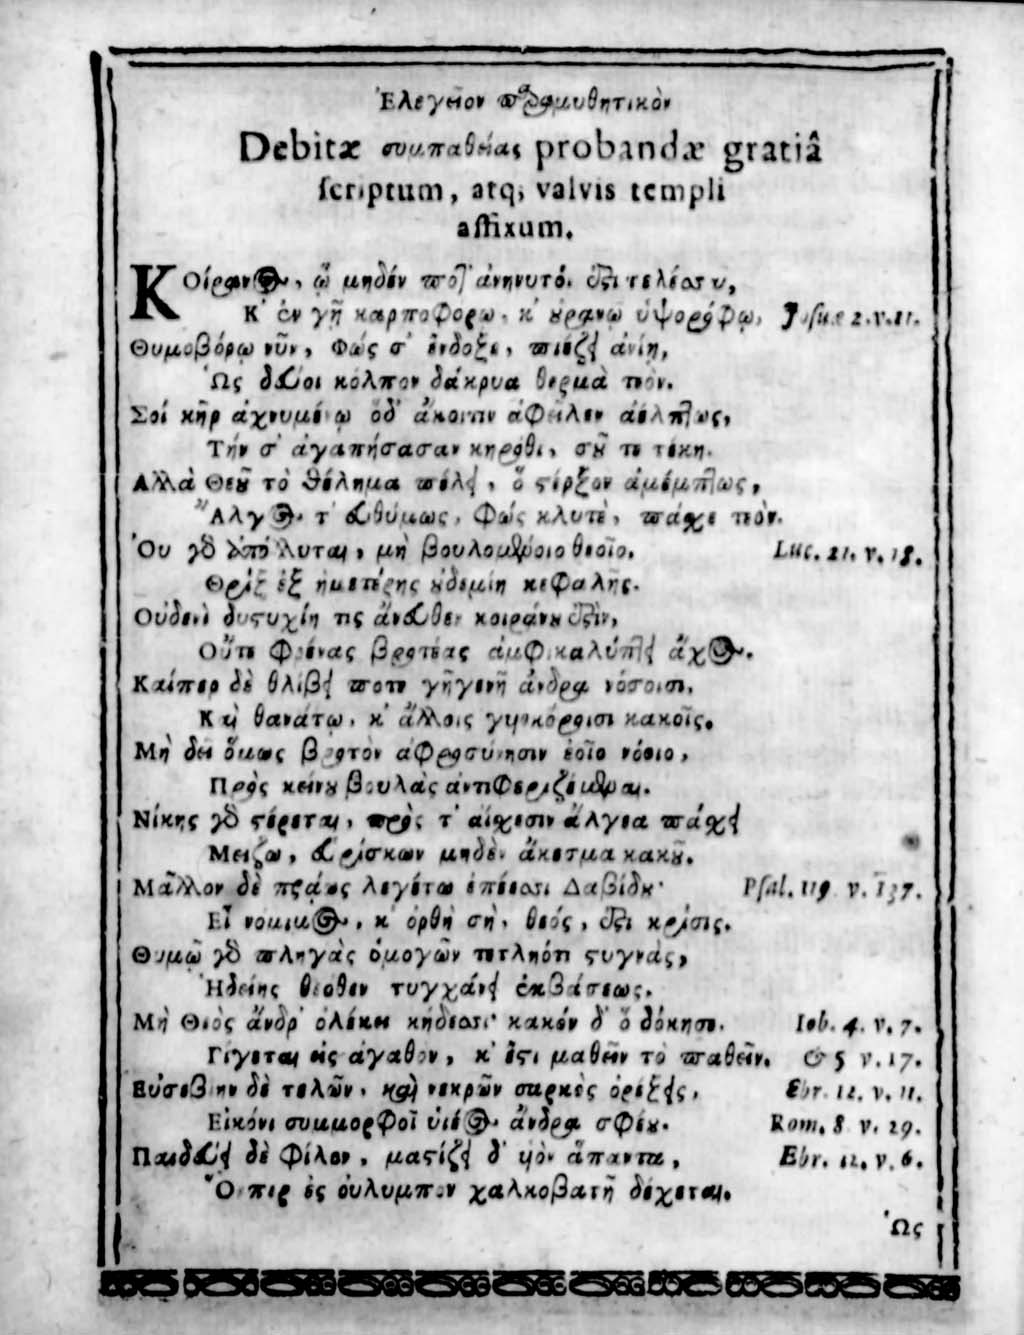 Ἐλεγεῖον παραμυθητικὸν
Debitæ συμπαθείας probandæ gratiâ
scriptum, atq; valvis templi
affixum.
ΚΟίρανος, ᾧ μηδέν ποτ' ἀνηνυτόν ἐστι τελέσαι,
Κ' ἐν γῇ καρποφόρῳ, κ' οὐρανῷ ὑψορόφῳ, Josuæ 2. v. 11.
Θυμοβόρῳ νῦν, Φώς σ' ἔνδοξε, πιέζει ἀνίῃ,
Ὡς δεύοι κόλπον δάκρυα θερμὰ τεόν.
Σοί κῆρ ἀχνυμένῳ ὅδ' ἄκοιτιν ἀφεῖλεν ἀέλπτως,
Τήν σ' ἀγαπήσασαν κηρόθι, σοῦ τε τέκη.
Αλλὰ Θεοῦ τὸ θέλημα πέλει, ὃ στέρξον ἀμέμπτως,
Ἄλγος τ' εὐθύμως, Φώς κλυτὲ, πάσχε τεόν.
Ὀυ γὰρ ἀπόλλυται, μὴ βουλομένοιο θεοῖο, Luc. 21. v. 18.
Θρίξ ἐξ ἡμετέρης οὐδεμίη κεφαλῆς.
Οὐδενὶ δυστυχίη τις ἄνευθεν κοιράνου ἐστὶν,
Οὔτε Φρένας βροτέας ἀμφικαλύπτει ἄχος.
Καίπερ δὲ θλίβει ποτε γῆγενῆ ἄνδρα νόσοισι,
Καὶ θανάτῳ, κ' ἄλλοις κακοῖς.
Μὴ δεῖ ὅμως βροτὸν ἀφροσύνησιν ἑοῖο νόοιο,
Πρὸς κείνου βουλὰς ἀντιφεριζέμεναι.
Νίκης γὰρ στέρεται, πρὸς τ' αἴσχεσιν ἄλγεα πάσχει
Μείζω, εὑρίσκων μηδὲν ἄκεσμα κακοῦ.
Μᾶλλον δὲ πράως λεγέτω ἐπέεσσι Δαβίδου· Psal. 119. v. 137.
Εἶ νόμιμος, κ' ὀρθὴ σὴ, θεός, ἐστι κρίσις.
Θυμῷ γὰρ πληγὰς ὁμογῶν τετληότι στυγνὰς,
Ἡδείης θεόθεν τυγχάνει ἐκβάσεως.
Μὴ Θεὸς ἄνδρ' ὀλέκει κήδεσσι· κακόν δ' ὃ δόκησε, Iob. 4. v. 7.
Γίγεται εἰς ἀγαθὸν, κ' ἔστι μαθεῖν τὸ παθεῖν. & 5 v. 17.
Εὐσεβίην δὲ τελῶν, καὶ νεκρῶν σαρκὸς ὀρέξεις, Ebr. 12. v. 11.
Εἰκόνι συμμορφοῖ υἱέος ἄνδρα σφέου. Rom. 8 v. 29.
Παιδεύει δὲ φίλον, μαστίζει δ' υἱὸν ἅπαντα, Ebr. 12. v. 6.
Ὅνπερ ἐς ὀυλυμπον χαλκοβατῆ δέχεται.
Ὡς